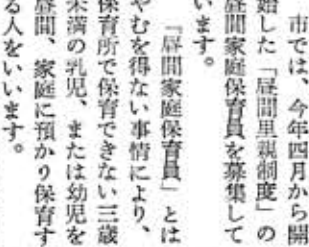 市では、今年四月から開
始した「昼間里親制度」の
昼間家庭保育員を募集して
います。
「昼間家庭保育員」とは
やむを得ない事情により、
保育所で保育できない三歳
未満の乳児、または幼児を
昼間、家庭に預かり保育す
る人をいいます。